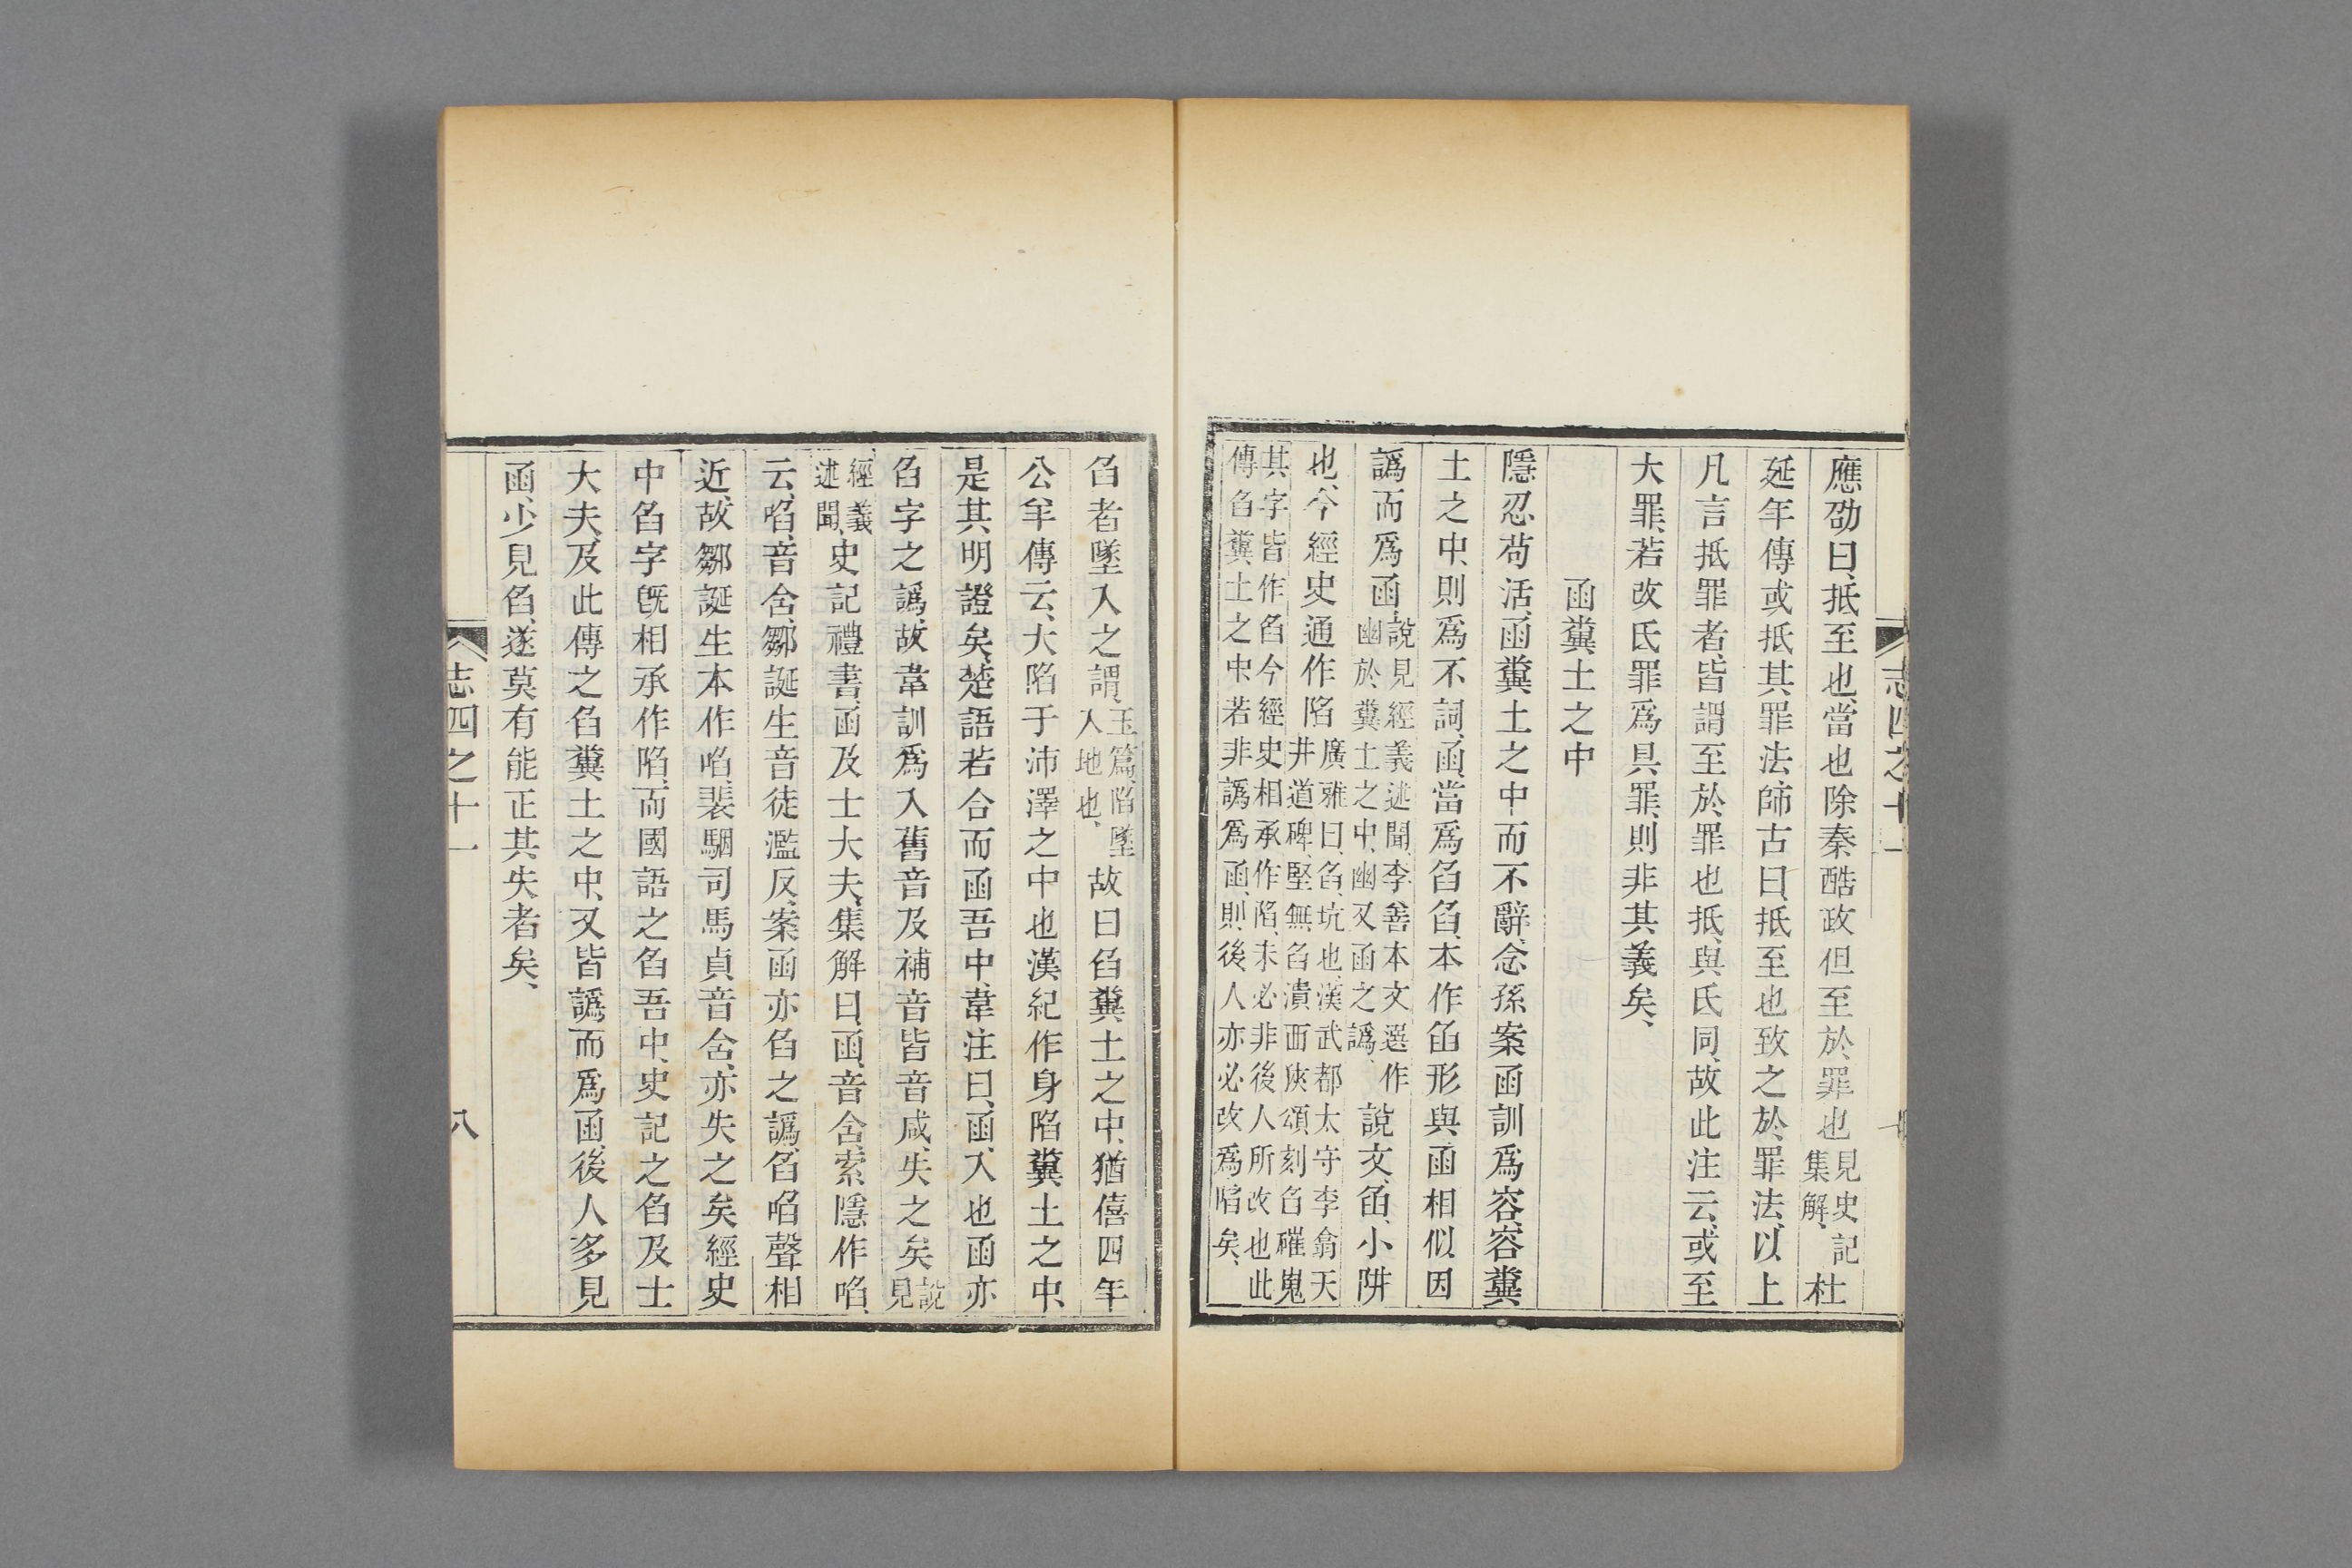 應劭曰、抵至也、當也、除秦酷政、但至於罪也見史記集解、杜
延年傳或抵其罪法、師古曰、抵至也、致之於罪法、以上
凡言抵罪者、皆謂至於罪也、抵、與氐同、故此注云、或至
大罪、若改氐罪爲具罪、則非其義矣、
函糞土之中
隱忍苟活、函糞土之中而不辭、念孫案函訓爲容、容糞
土之中、則爲不詞、函、當爲臽、臽、本作臽形與函相似、因
譌而爲函說見經義述聞、李善本文選作幽於糞土之中、幽又函之譌、說文、臽、小阱
也、今經史通作陷廣雅曰、臽、坑也、漢武都太守李翕天井道碑、堅無臽潰、西狹頌刻臽磪嵬
其字皆作臽、今經史相承作陷、未必非後人所改也、此傳臽糞土之中、若非譌爲函、則後人亦必改爲陷矣、
臽者墜入之謂、玉篇、陷、墜入地也、故曰臽糞土之中、猶僖四年
公羊傳云、大陷于沛澤之中也、漢紀作身陷糞土之中、
是其明證矣、楚語若合而函吾中、韋注曰、函、入也、函亦
臽字之譌、故韋訓爲入、舊音及補音皆音咸、失之矣說見
經義述聞、史記禮書、函及士大夫、集解曰、函、音含、索隱作啗、
云、啗、音含、鄒誕生音徒濫反、案函亦臽之譌、臽啗聲相
近、故鄒誕生本作啗、裴駰司馬貞音含、亦失之矣、經史
中臽字旣相承作陷、而國語之臽吾中、史記之臽及士
大夫、及此傳之臽糞土之中、又皆譌而爲函、後人多見
函、少見臽、遂莫有能正其失者矣、
志四之十一
八